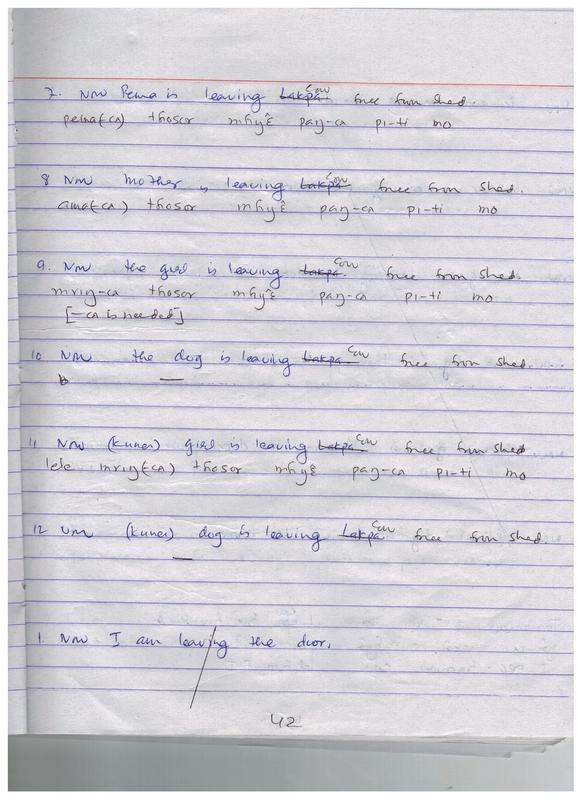 7. Now Pema is leaving Lakpa Cow free from shed.
pema(-ca) thosor mhyɛ̂ paŋ-ca pi-ti mo
8 Now mother is leaving Lakpa Cow free from shed.
ama(-ca) thosor mhyɛ̂ paŋ-ca pi-ti mo
9. Now the girl is leaving Lakpa Cow free from shed.
mriŋ-ca thosor mhyɛ̂ paŋ-ca pi-ti mo
[-ca is needed]
10 Now the dog is leaving Lakpa Cow free from shed.
—
11 Now (kunei) girl is leaving Lakpa Cow free from shed
mriŋ(-ca) thosor mhyɛ̂ paŋ-ca pi-ti mo
12 Now (kunei) dog is leaving Lakpa Cow free from shed.
—
1. Now I am leaving the door.
42